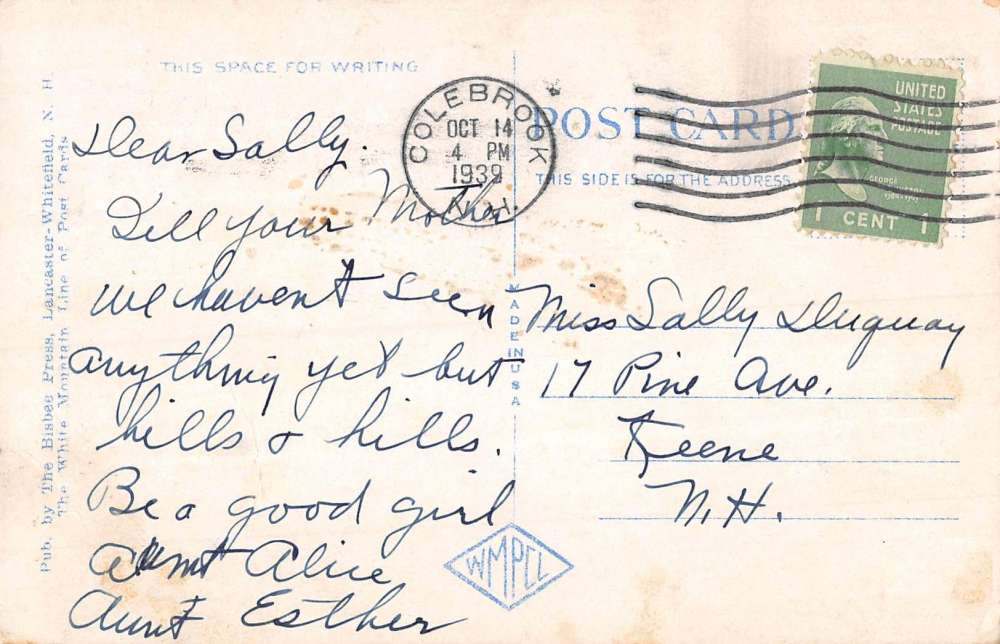 THIS SPACE FOR WRITING
Dear Sally.
Tell your Mother
we havent seen
anything yet but
hills & hills.
Be a good girl
Aunt Alice
Aunt Esther
Pub. by The Bisbee Press, Lancaster-Whitefield, N. H.
The White Mountain Line of Post Cards
COLEBROOK
OCT 14
4 PM
1939
N.H.
POST CARD
THIS SIDE IS FOR THE ADDRESS
UNITED
STATES
POSTAGE
GEORGE
WASHINGTON
1 CENT 1
MADE IN USA
Miss Sally Duguay
17 Pine Ave.
Keene
N.H.
WMPCL